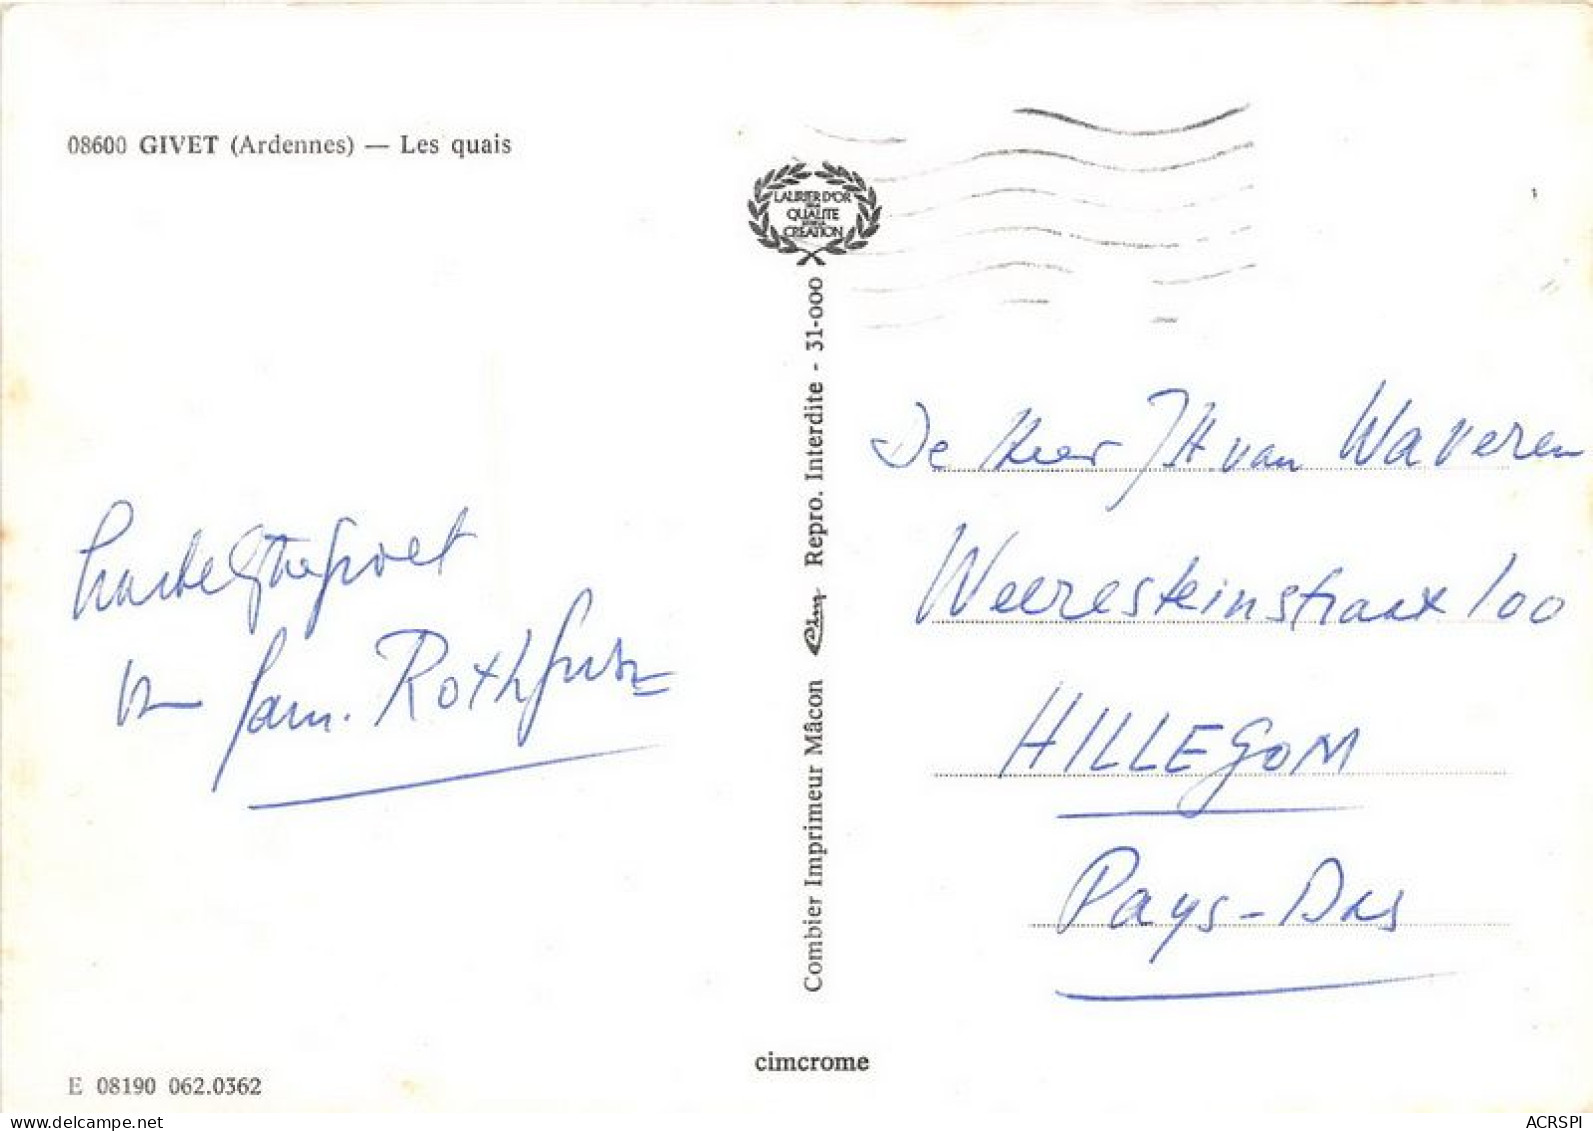 08600 GIVET (Ardennes) — Les quais
LAURIER D'OR
DE LA
QUALITE
CREATION
Combier Imprimeur Mâcon Repro. Interdite - 31-000
Hartel gegroet
van fam. Rothfusz
De Heer JH van Waveren
Weeresteinstraat 100
HILLEGOM
Pays-Bas
cimcrome
E 08190 062.0362
www.delcampe.net
ACRSPI